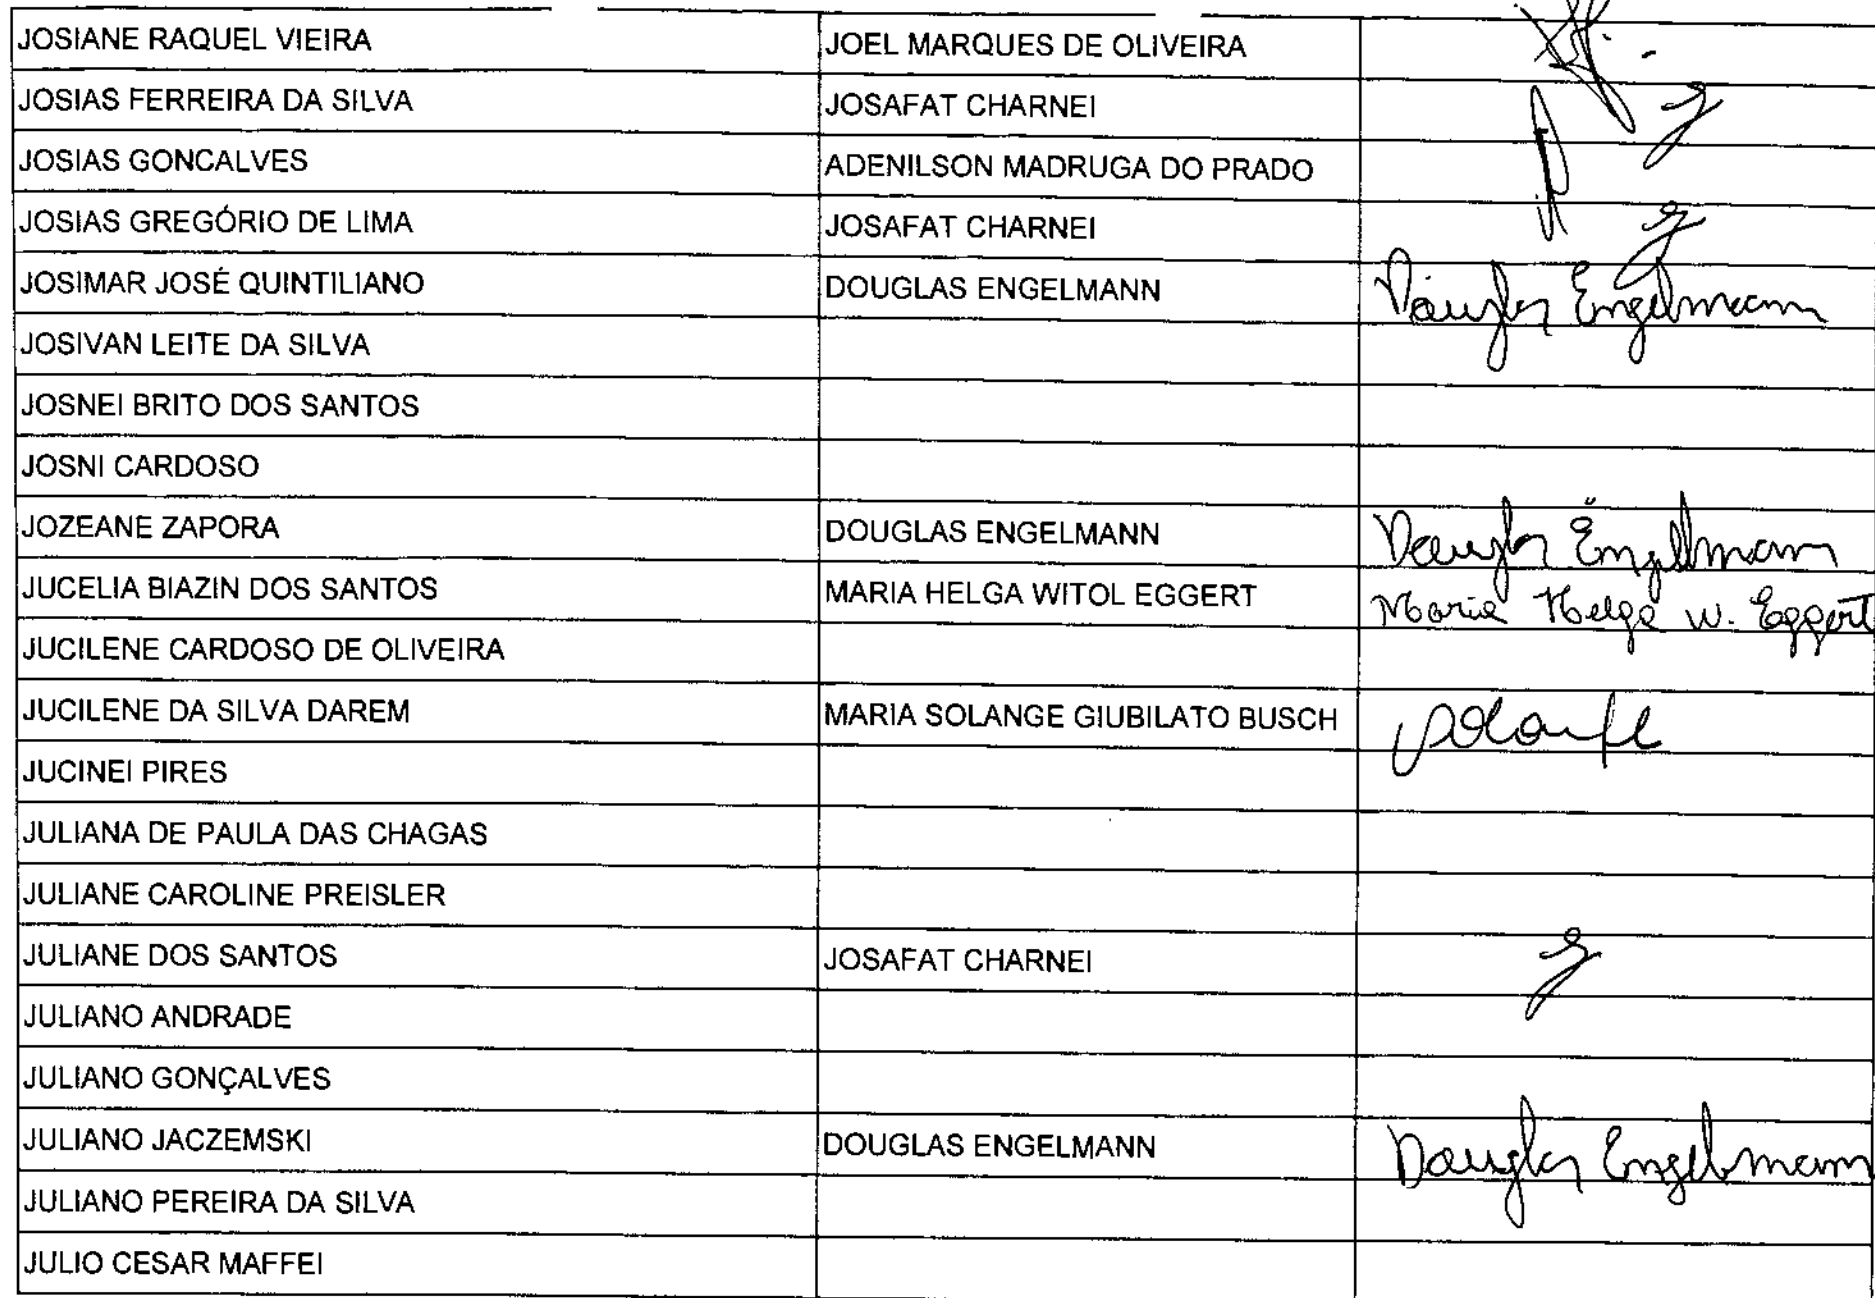 JOSIANE RAQUEL VIEIRA JOEL MARQUES DE OLIVEIRA
JOSIAS FERREIRA DA SILVA JOSAFAT CHARNEI
JOSIAS GONCALVES ADENILSON MADRUGA DO PRADO
JOSIAS GREGÓRIO DE LIMA JOSAFAT CHARNEI
JOSIMAR JOSÉ QUINTILIANO DOUGLAS ENGELMANN Douglas Engelmann
JOSIVAN LEITE DA SILVA
JOSNEI BRITO DOS SANTOS
JOSNI CARDOSO
JOZEANE ZAPORA DOUGLAS ENGELMANN Douglas Engelmann
JUCELIA BIAZIN DOS SANTOS MARIA HELGA WITOL EGGERT Maria Helga W. Eggert
JUCILENE CARDOSO DE OLIVEIRA
JUCILENE DA SILVA DAREM MARIA SOLANGE GIUBILATO BUSCH Solange
JUCINEI PIRES
JULIANA DE PAULA DAS CHAGAS
JULIANE CAROLINE PREISLER
JULIANE DOS SANTOS JOSAFAT CHARNEI
JULIANO ANDRADE
JULIANO GONÇALVES
JULIANO JACZEMSKI DOUGLAS ENGELMANN Douglas Engelmann
JULIANO PEREIRA DA SILVA
JULIO CESAR MAFFEI